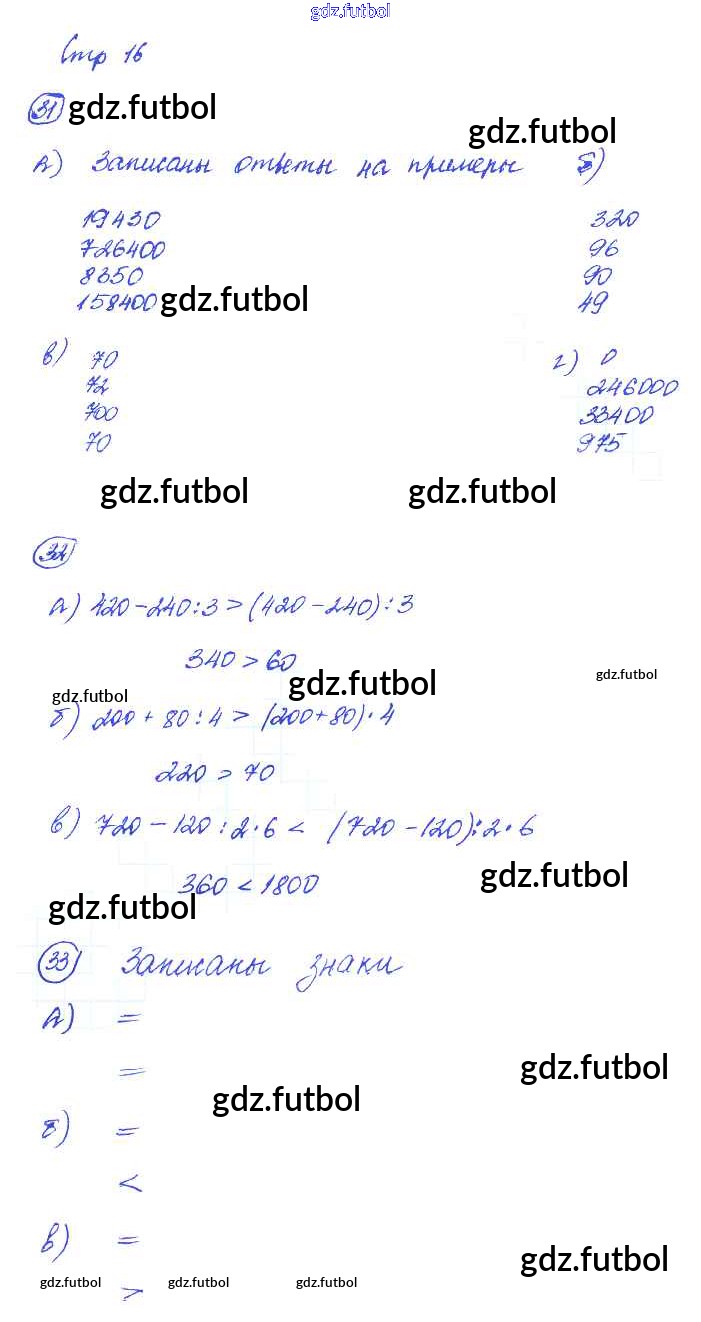 gdz.futbol
Стр 16
31 gdz.futbol
gdz.futbol
А) Записаны ответы на примеры Б)
19430 320
726400 96
8350 90
158400 gdz.futbol 49
в) 70 г) 0
72 246000
700 33400
70 975
gdz.futbol gdz.futbol
32
а) 420-240:3>(420-240):3
340>60
gdz.futbol gdz.futbol
gdz.futbol
б) 200+80:4>(200+80)·4
220>70
в) 720-120:2·6< (720-120):2·6
360<1800 gdz.futbol
gdz.futbol
33 Записаны знаки
А) =
=
gdz.futbol
gdz.futbol
Б) =
<
в) =
gdz.futbol
gdz.futbol gdz.futbol gdz.futbol
>